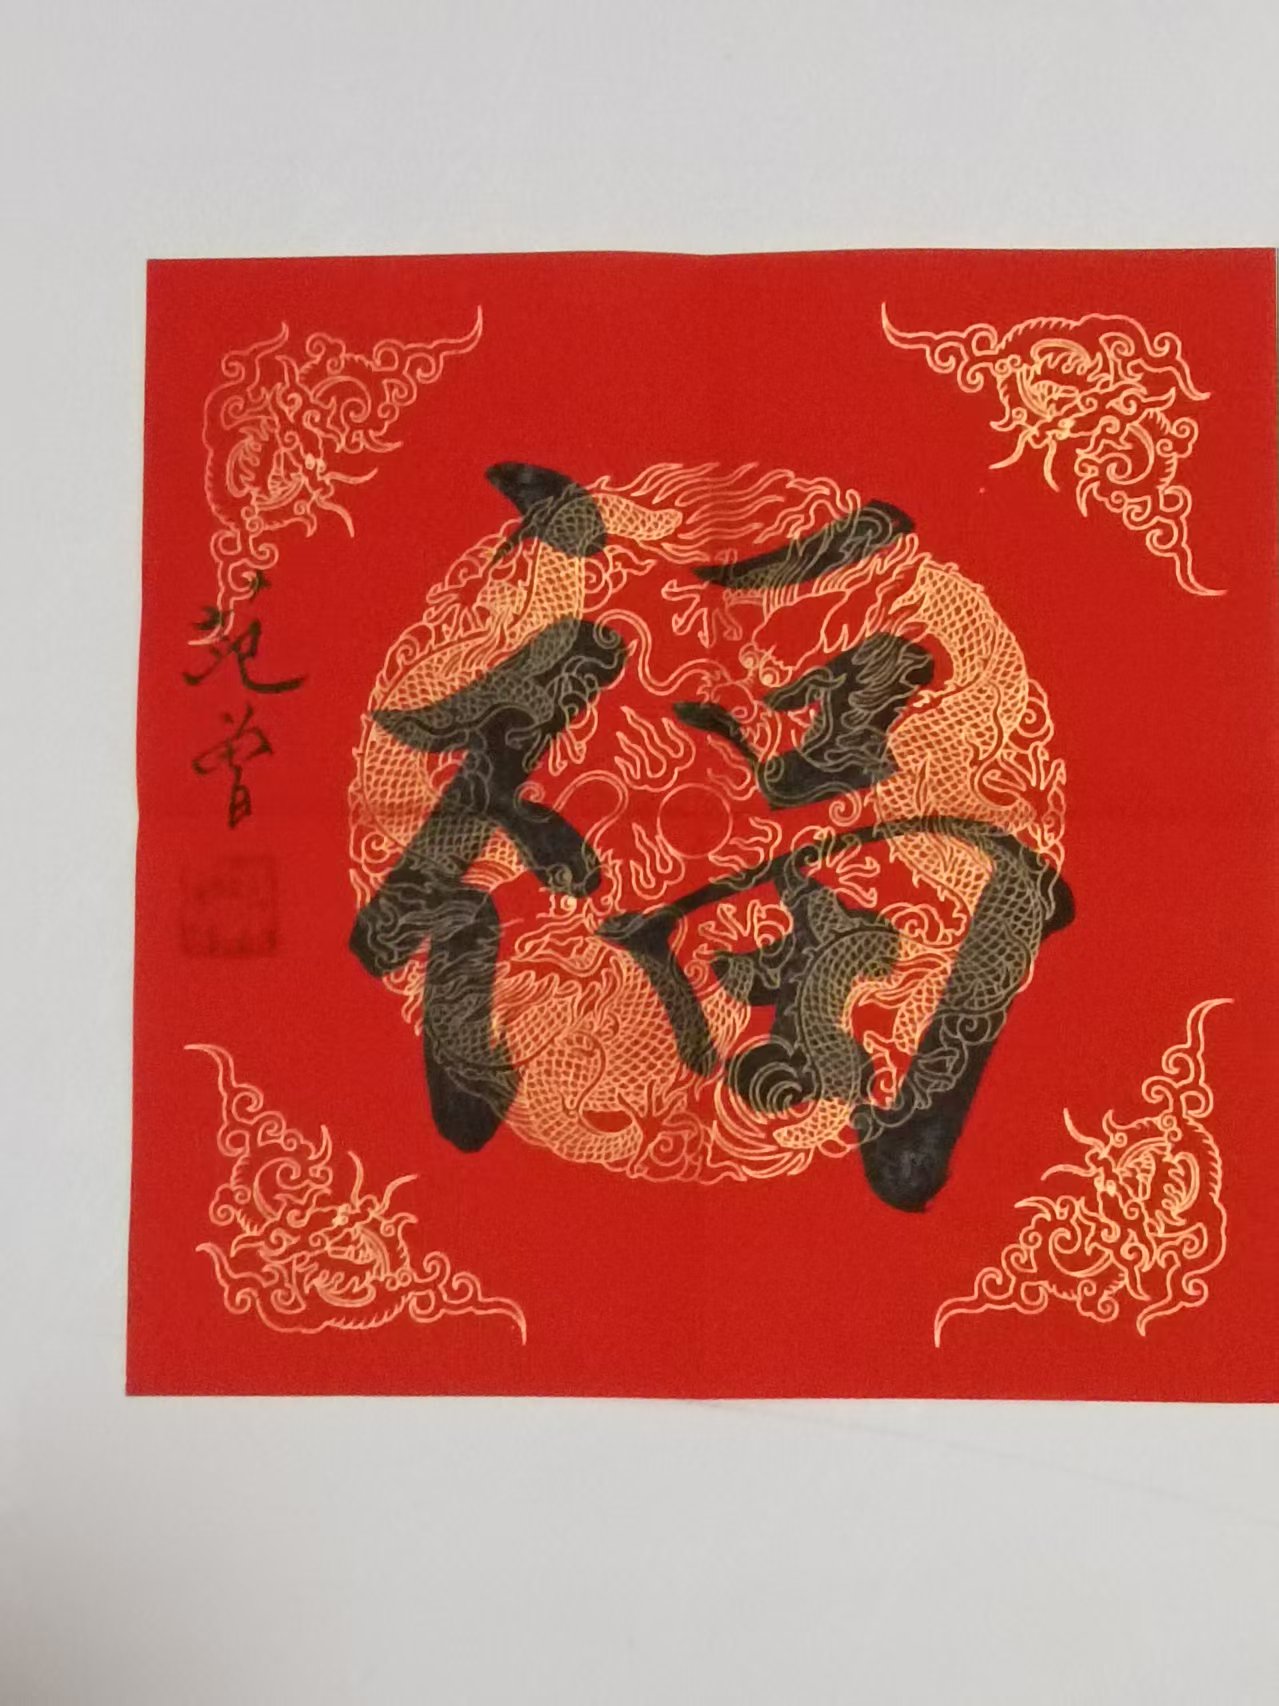 福
范曾